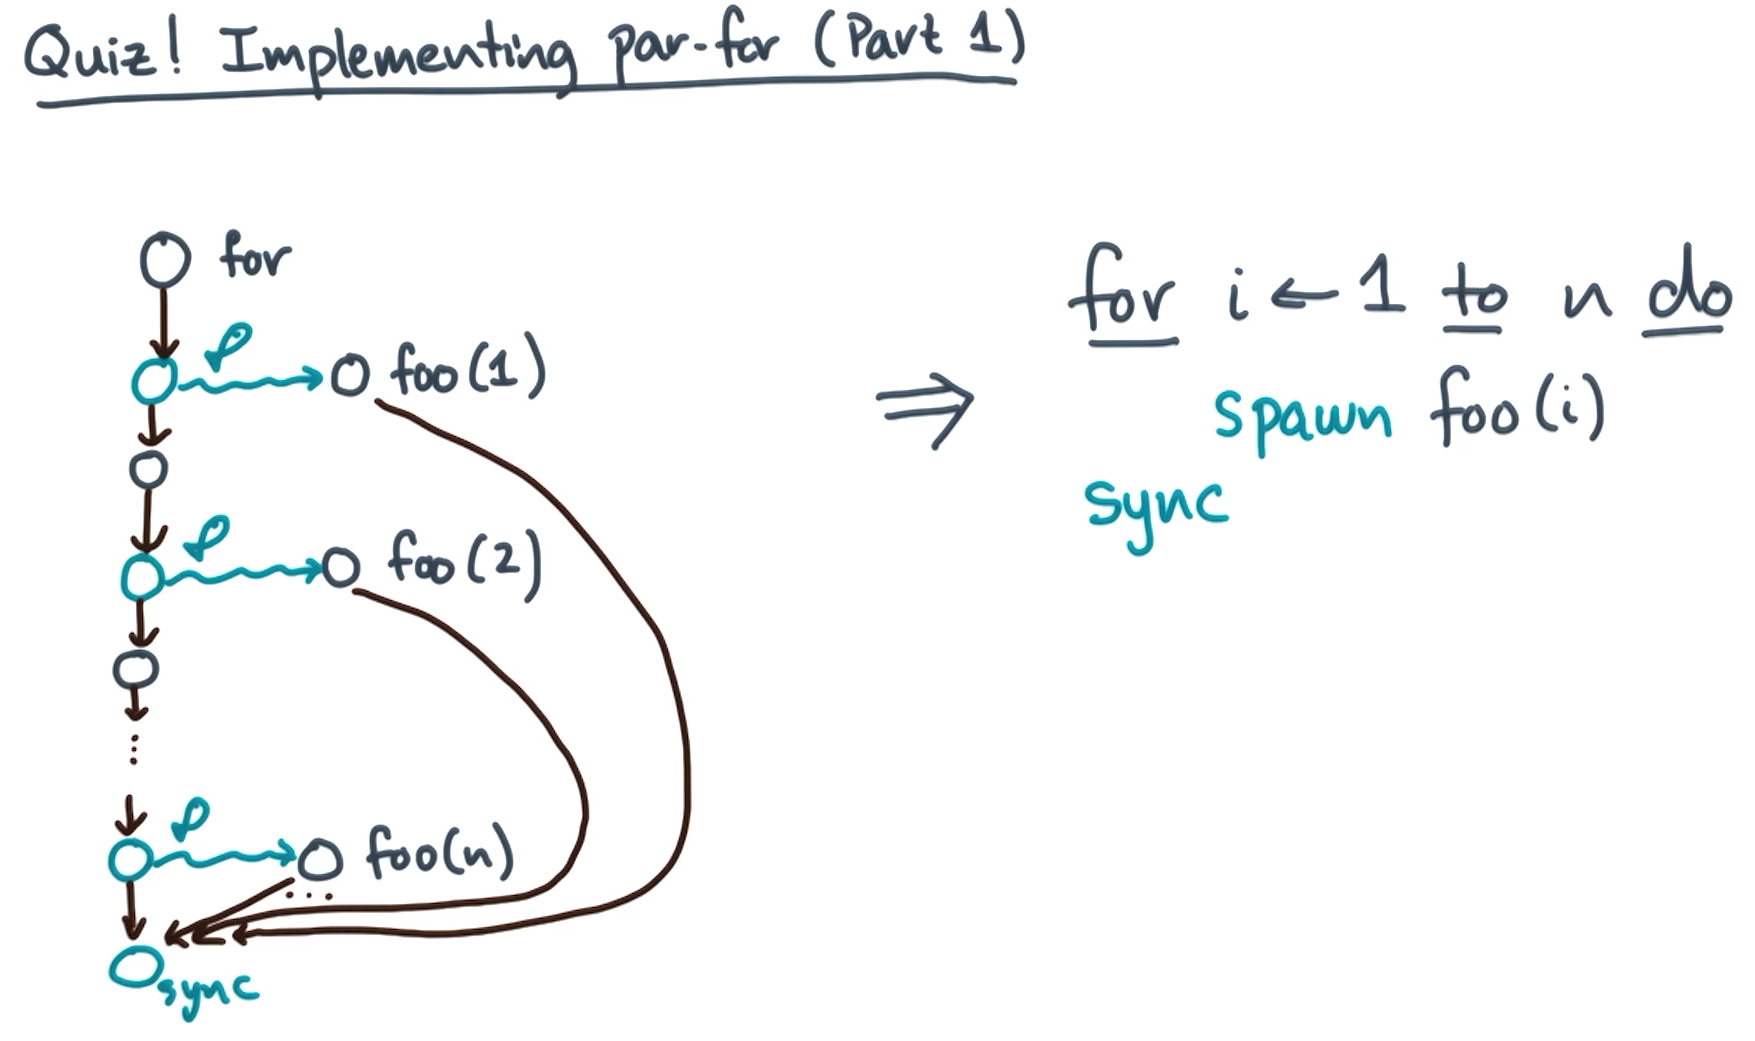 Quiz! Implementing par-for (Part 1)
for
foo(1)
foo(2)
foo(n)
sync
⇒
for i ← 1 to n do
spawn foo(i)
sync